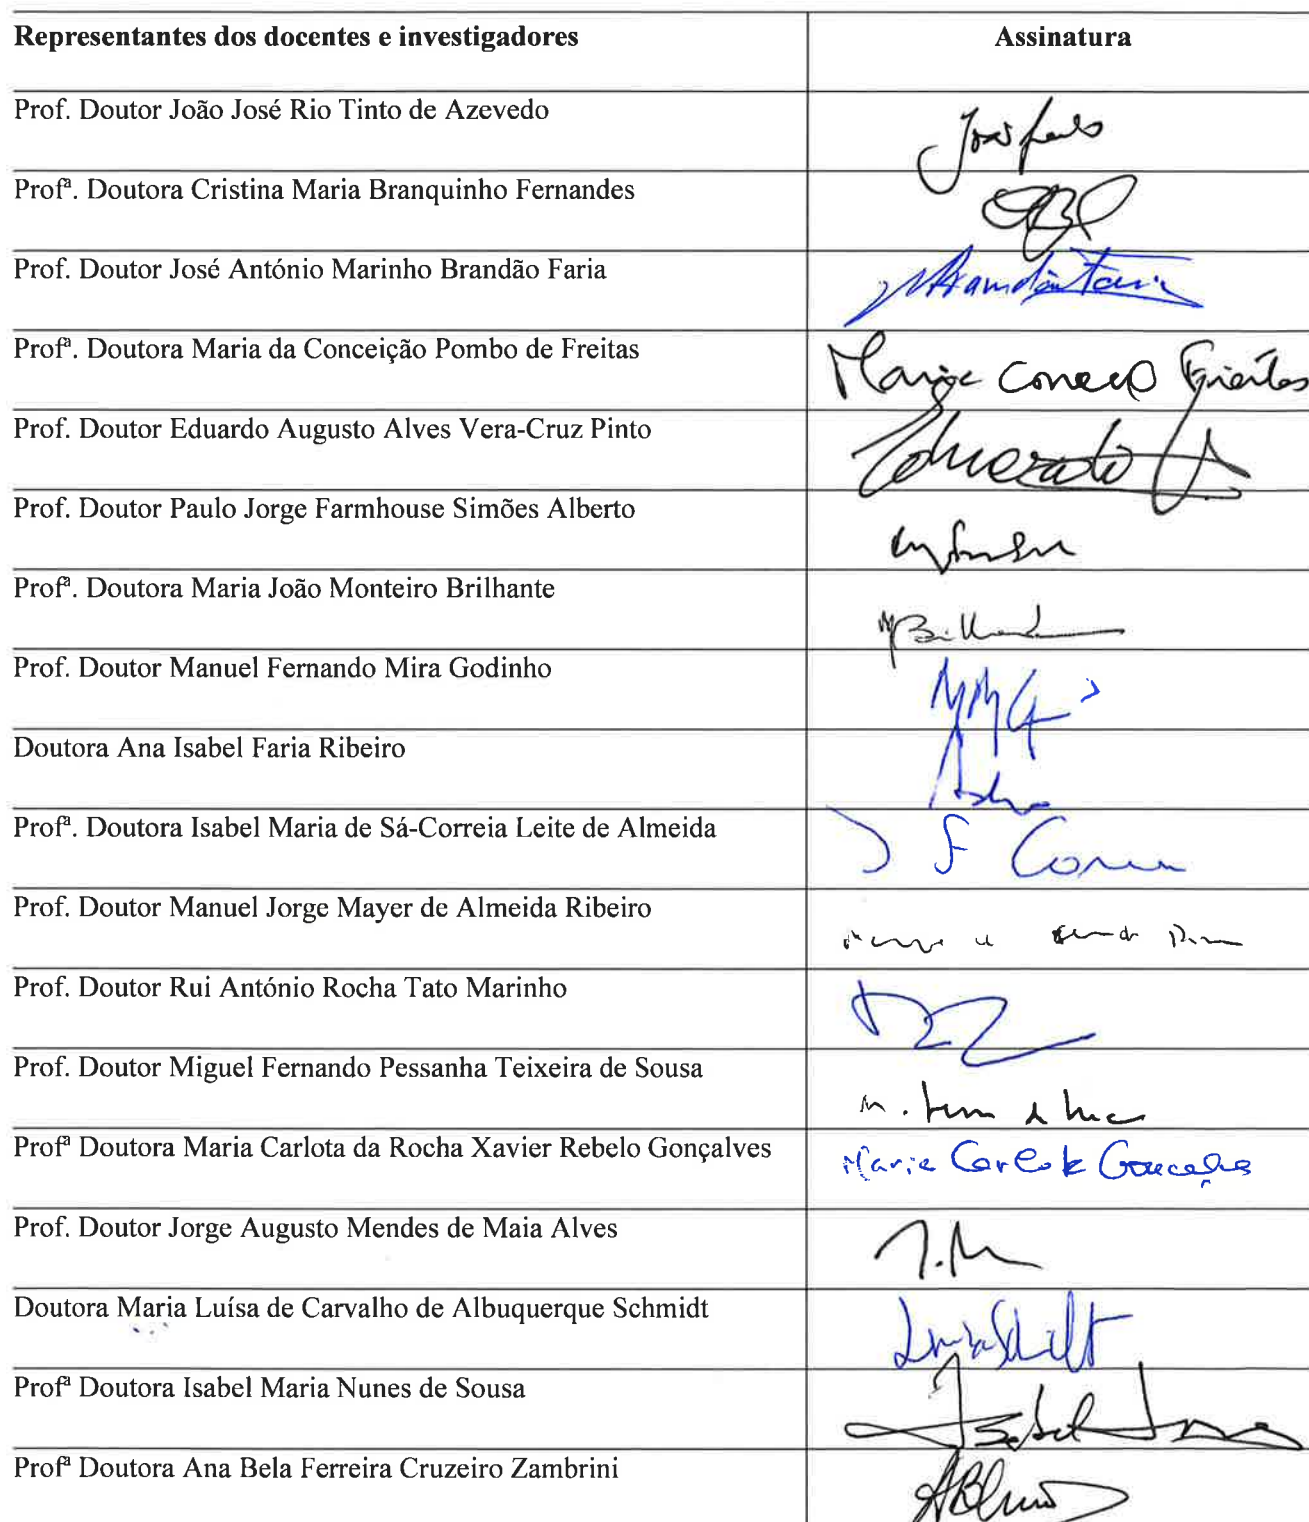 Representantes dos docentes e investigadores Assinatura
Prof. Doutor João José Rio Tinto de Azevedo
Profª. Doutora Cristina Maria Branquinho Fernandes
Prof. Doutor José António Marinho Brandão Faria
Profª. Doutora Maria da Conceição Pombo de Freitas Maria Freitas
Prof. Doutor Eduardo Augusto Alves Vera-Cruz Pinto Eduardo
Prof. Doutor Paulo Jorge Farmhouse Simões Alberto
Profª. Doutora Maria João Monteiro Brilhante
Prof. Doutor Manuel Fernando Mira Godinho
Doutora Ana Isabel Faria Ribeiro
Profª. Doutora Isabel Maria de Sá-Correia Leite de Almeida
Prof. Doutor Manuel Jorge Mayer de Almeida Ribeiro
Prof. Doutor Rui António Rocha Tato Marinho
Prof. Doutor Miguel Fernando Pessanha Teixeira de Sousa
Profª Doutora Maria Carlota da Rocha Xavier Rebelo Gonçalves Maria Carlota Gonçalves
Prof. Doutor Jorge Augusto Mendes de Maia Alves
Doutora Maria Luísa de Carvalho de Albuquerque Schmidt
Profª Doutora Isabel Maria Nunes de Sousa Isabel
Profª Doutora Ana Bela Ferreira Cruzeiro Zambrini